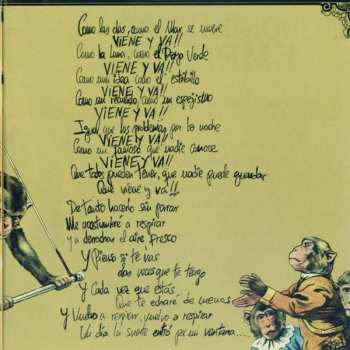 Como las olas, como el Mar, se mueve
VIENE Y VA!!
Como la Luna, como el Perro Verde
VIENE Y VA!!
Como una idea como el estribillo
VIENE Y VA!!
Como un recuerdo como un espejismo
VIENE Y VA!!
Igual que los problemas por la noche
VIENE Y VA!!
Como un famoso que nadie conoce
VIENE Y VA!!
Que todos pueden tener, que nadie puede guardar
Que viene y va!!
De tanto hacerlo sin parar
Me acostumbré a respirar
y a derrochar el aire fresco
Y Pienso si te vas
dos veces que te tengo
Y Cada vez que estás,
Que te echaré de menos
Y Vuelvo a respirar, vuelvo a respirar
Un día la suerte entró por mi ventana...